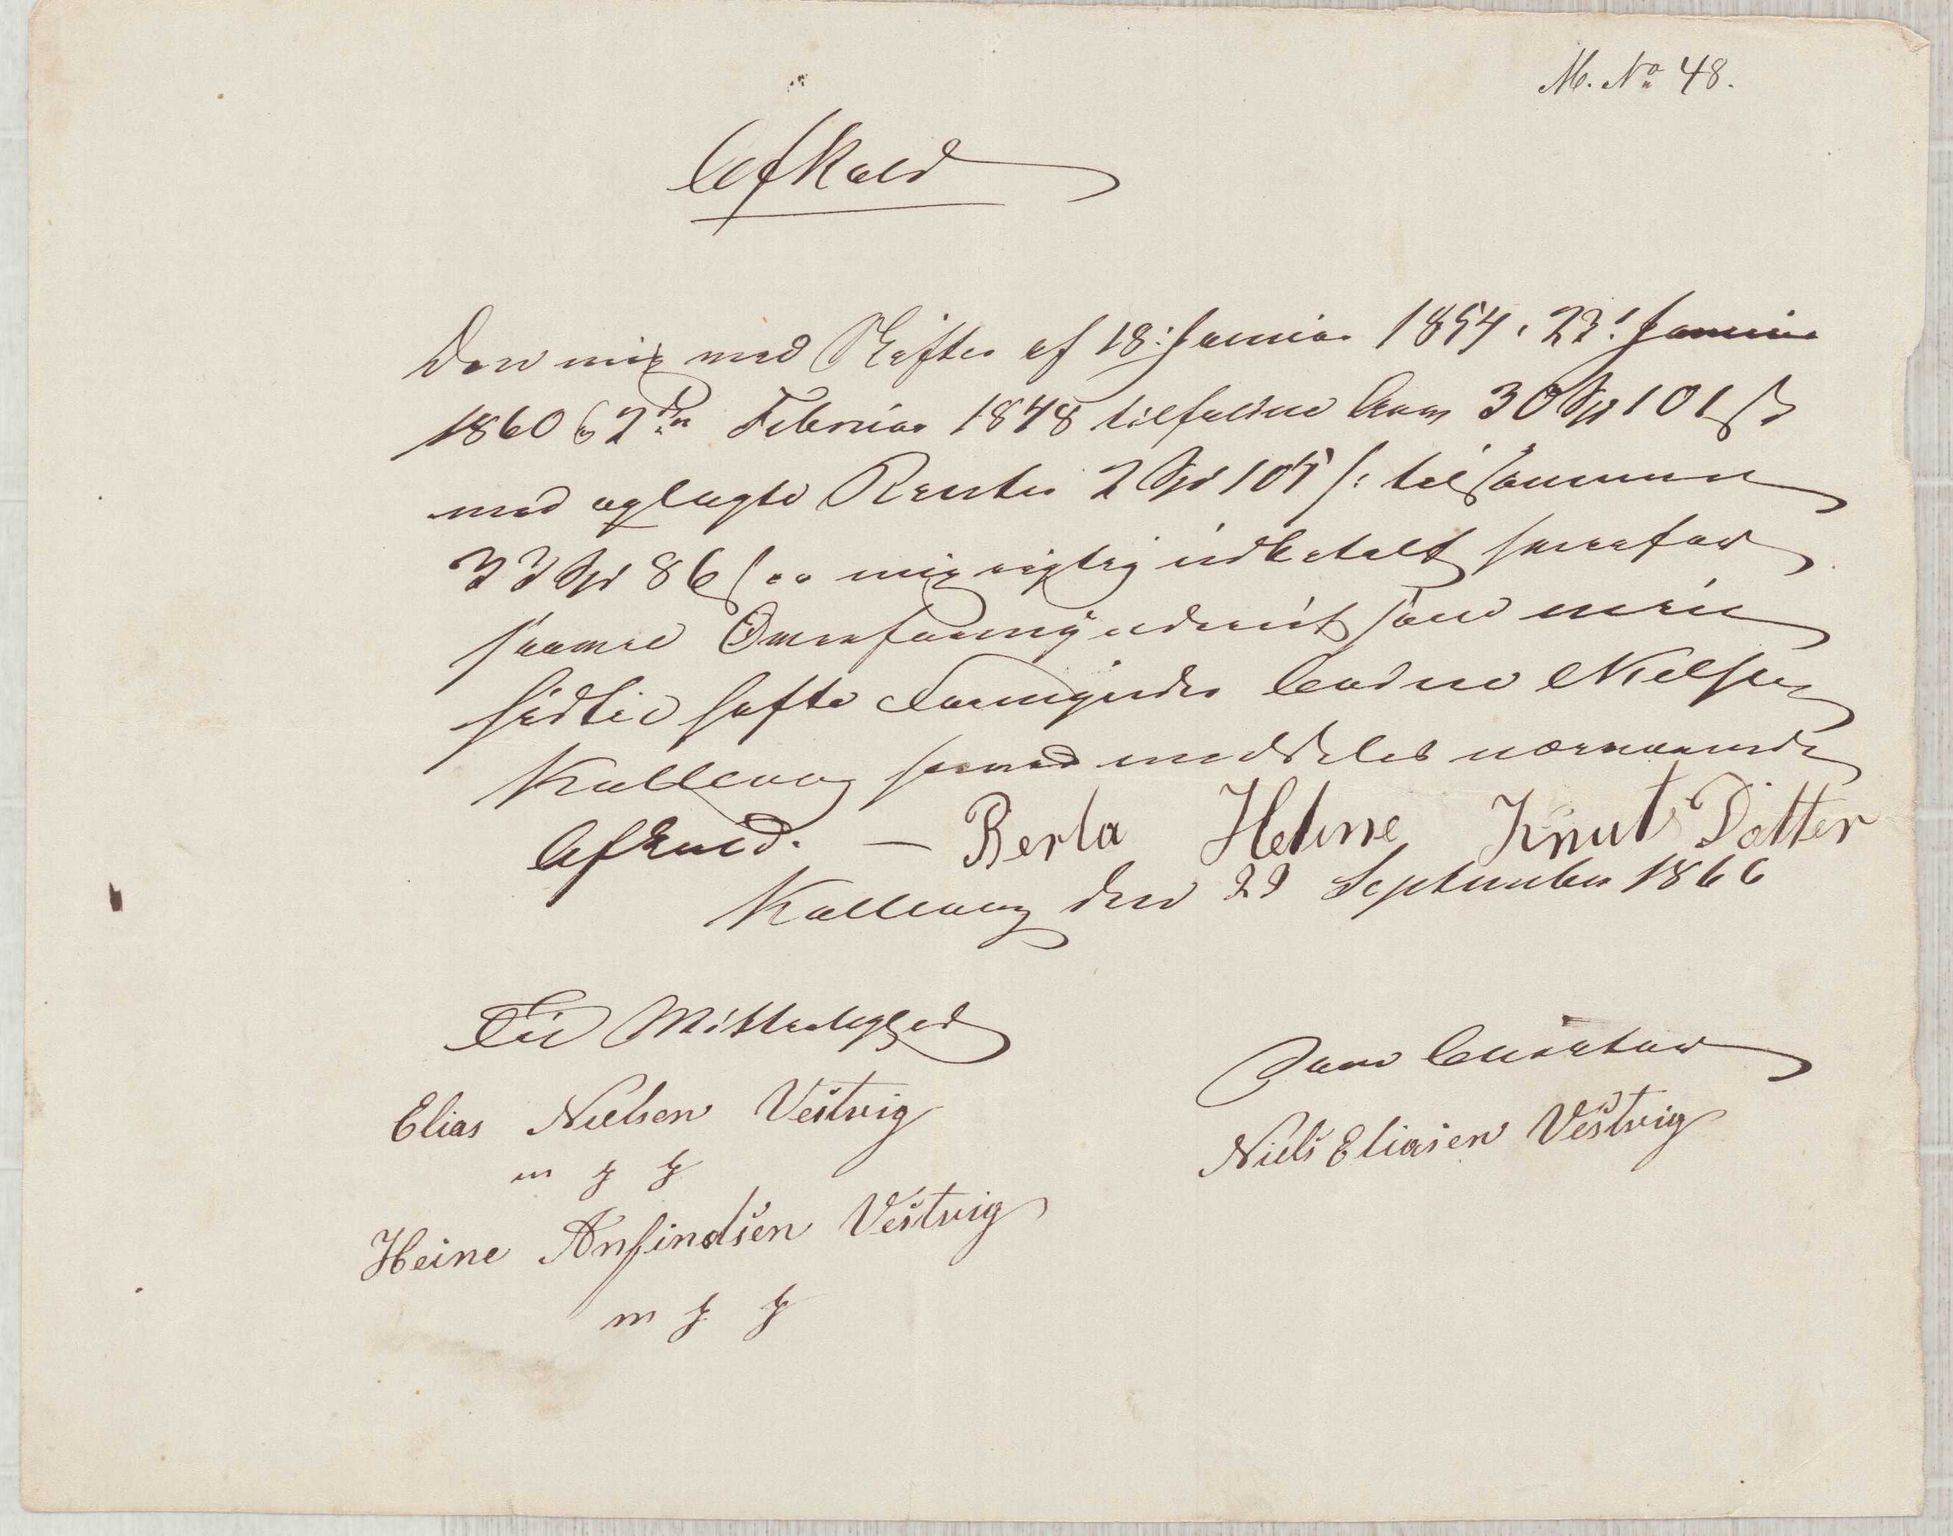 M. No 48.
Afkald
Den mig med Skifter af 18: Januar 1854, 23: Januar
1860 & 2den Februar 1848 tilfaldne Arv 30 Spd 101 ß
med oplagte Renter 2 Spd 105 ß: tilsammen
33 Spd 86 ß er mig rigtig udbetalt hvorfor
saavel Overformynderiet som min
hidtil hafte Formynder Nielsen
Kallevag herved meddeles nærværende
Afkald. – Berta Heline Knuts Datter
Kallevag den 29 September 1866
Til Vitterlighed
Som Curator
Elias Nielsen Vestvig
Niels Eliasen Vestvig
m p p
Heine Anfindsen Vestvig
m p p